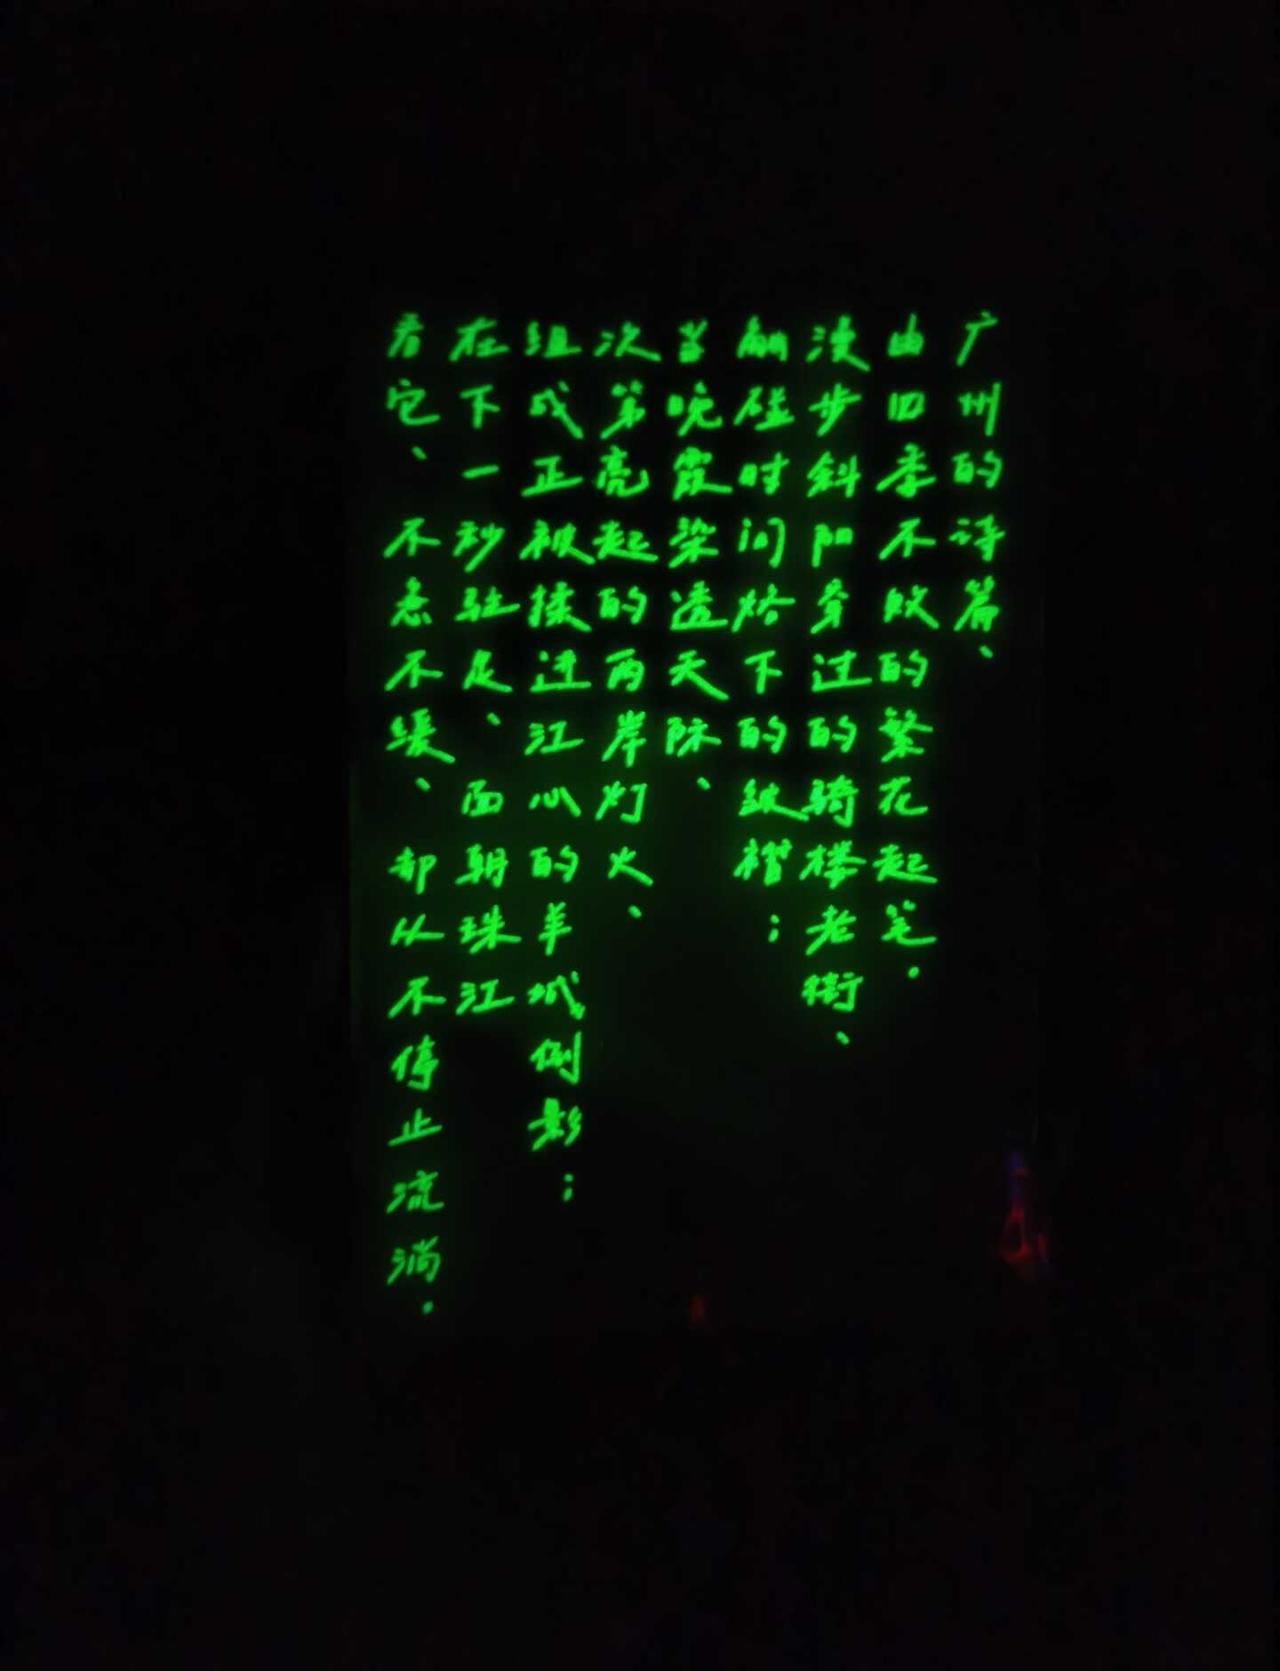 广州的诗篇、
由四季不败的繁花起笔。
漫步斜阳穿过的骑楼老街、
触碰时间烙下的皱褶；
当晚霞染透天际、
次第亮起的两岸灯火、
组成正被揉进江心的羊城倒影；
在下一秒驻足、面朝珠江
看它、不急不缓、却从不停止流淌。